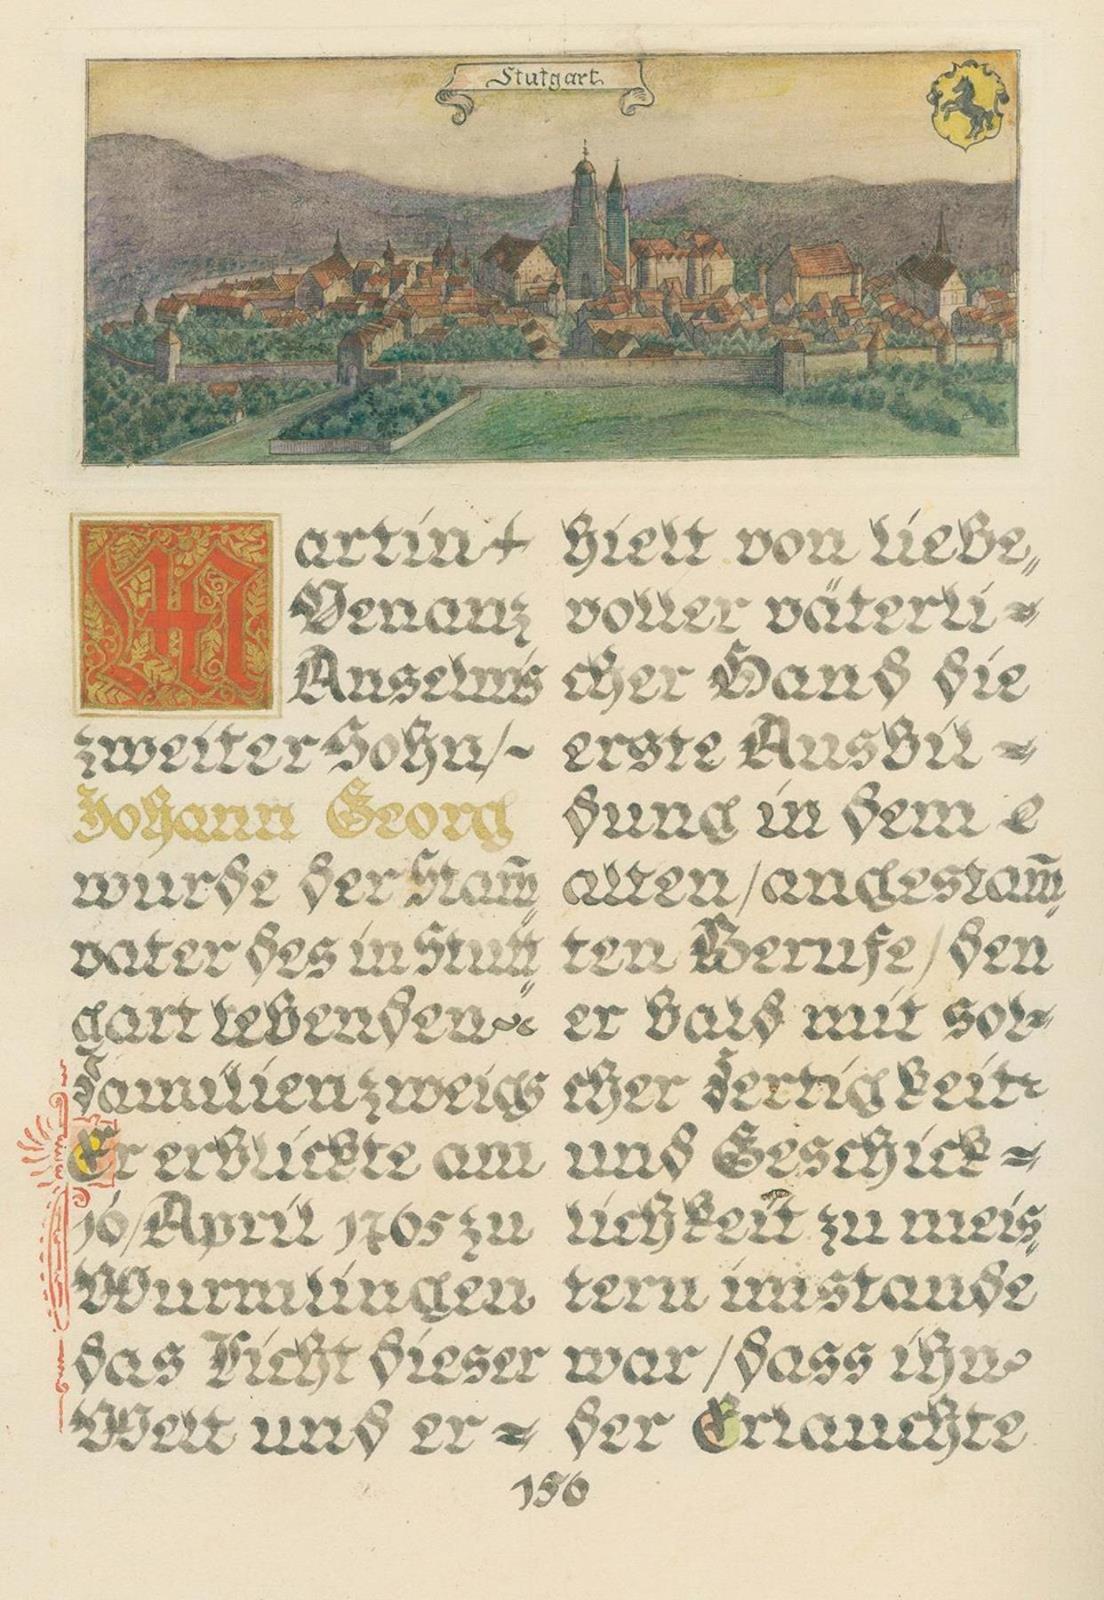 Stutgart.
Martin+
Venanz
Anselms
zweiter Sohn/~
Johann Georg
wurde der Stam̅„
vater des in Stutt„
gart lebenden~
Familienzweigs
Er erblickte am
16/April 1765 zu
Wurmlingen
das Licht dieser
Welt und er=
hielt von liebe„
voller väterli=
cher Hand die
erste Ausbil=
dung in dem
alten/angestam̅„
ten Berufe/den
er bald mit sol=
cher Fertigkeit
und Geschick=
lichkeit zu meis„
tern imstande
war/dass ihn
der Erlauchte
156